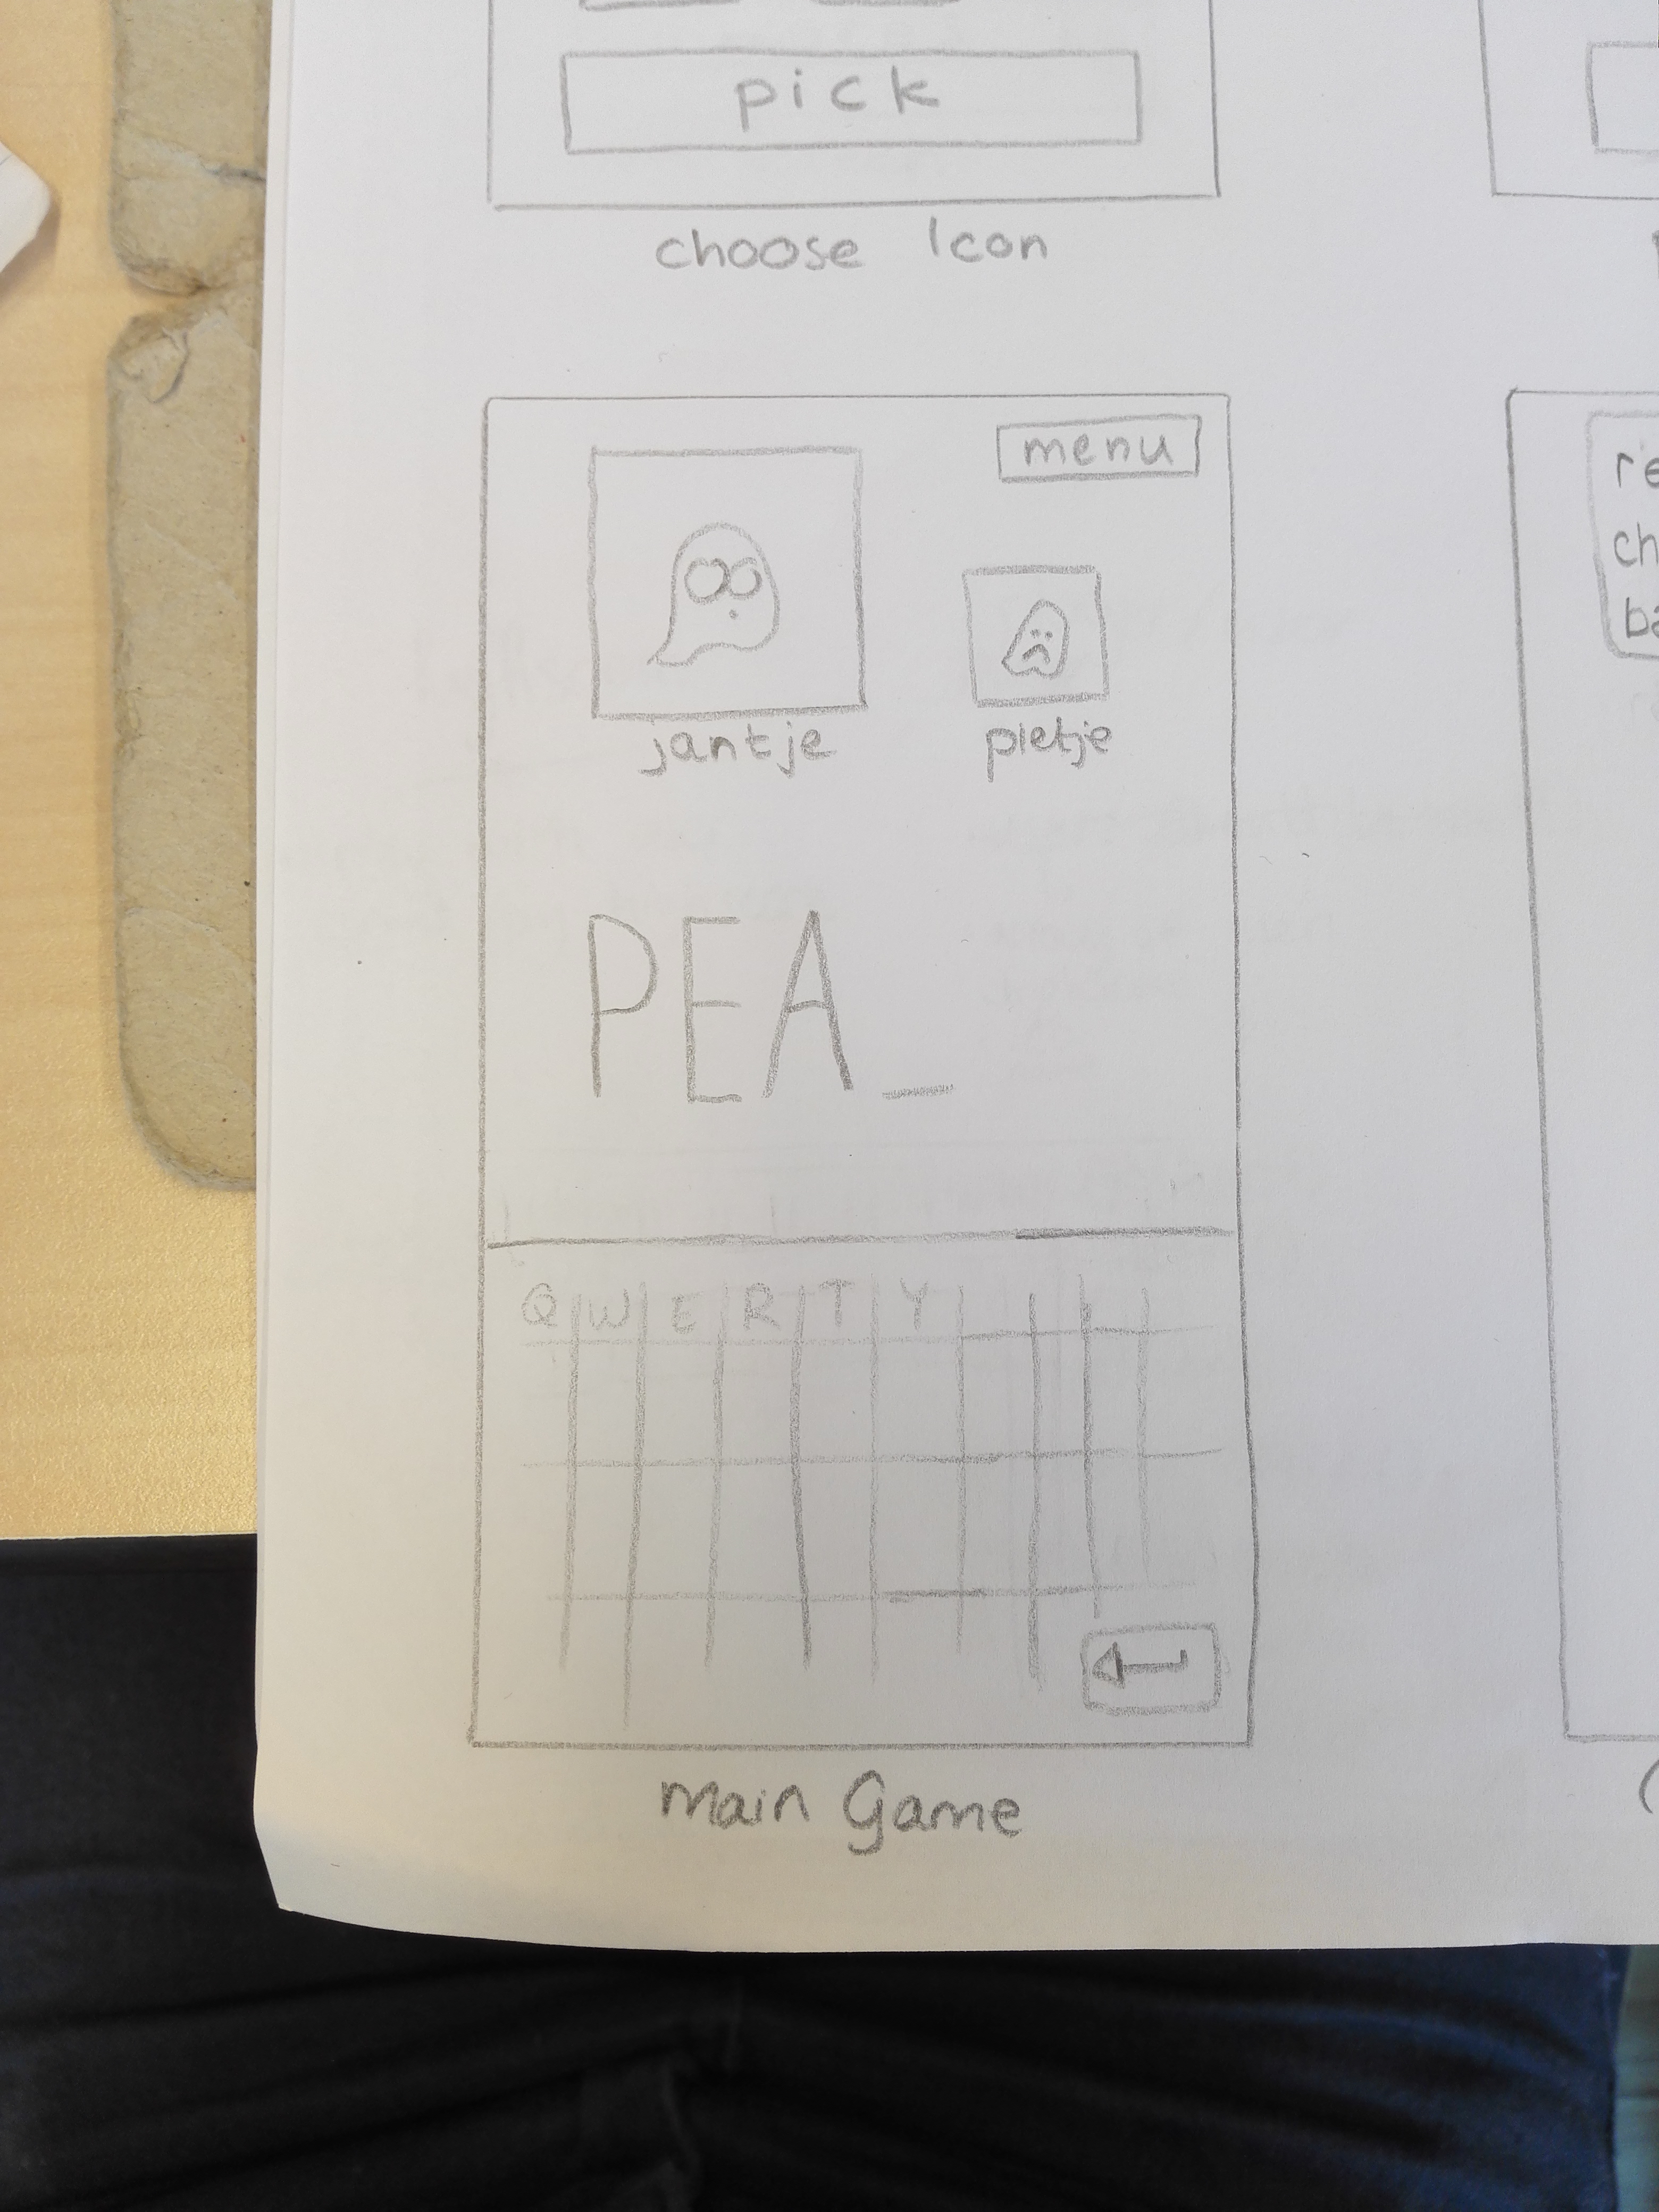 pick
choose Icon
menu
jantje
pietje
PEA_
Q W E R T Y
Main Game
re
ch
ba